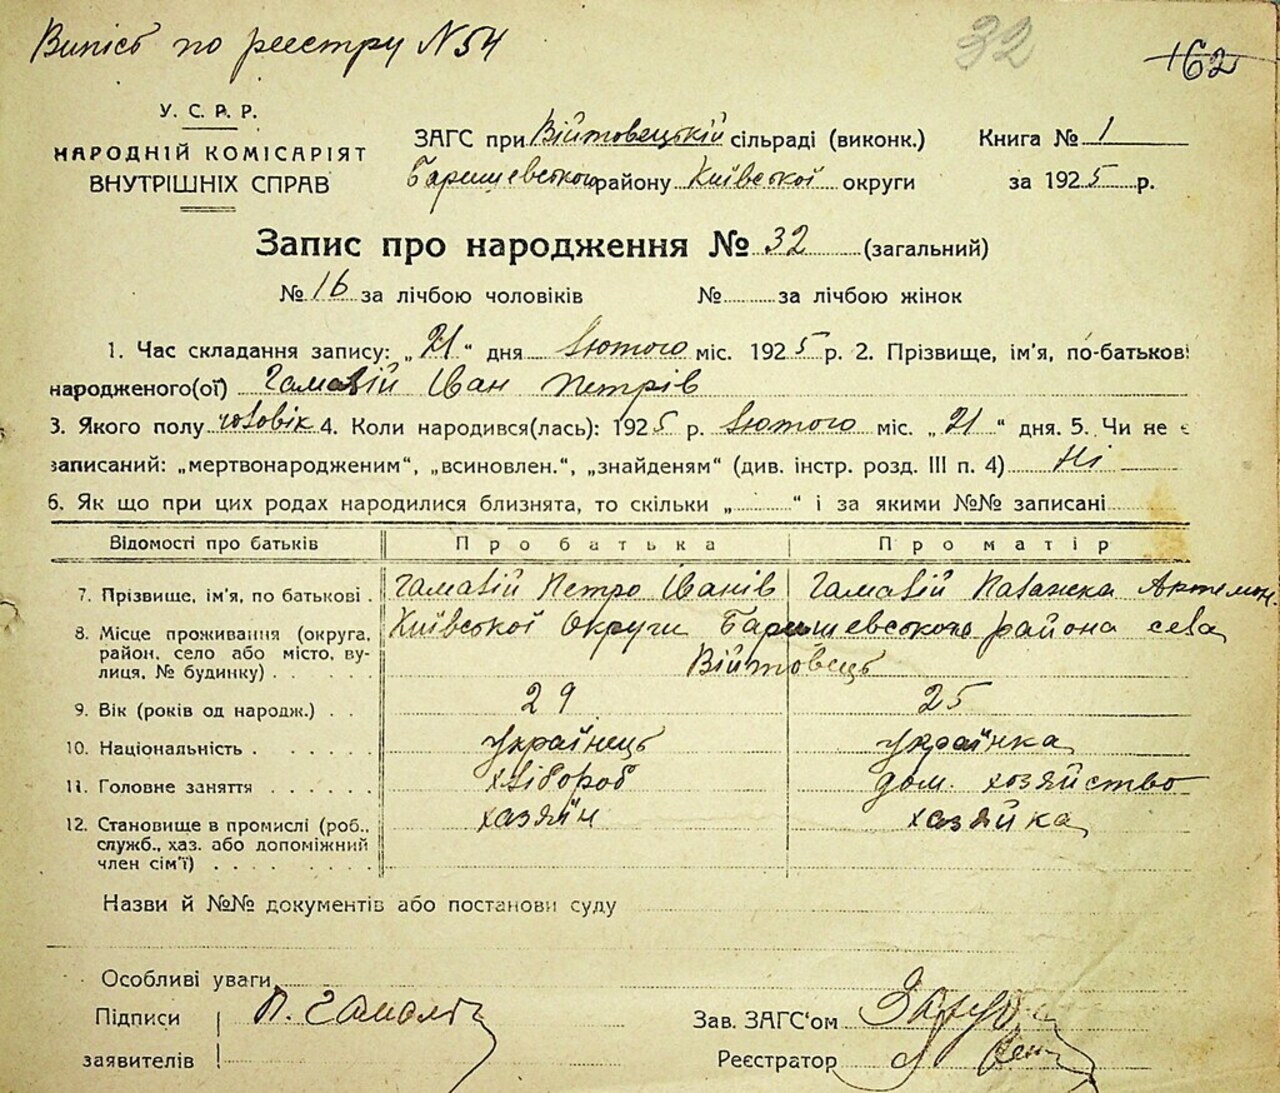 Випісь по реєстру N 54
32
162
У. С. Р. Р.
НАРОДНІЙ КОМІСАРІЯТ
ВНУТРІШНІХ СПРАВ
ЗАГС при Війтовецькій сільраді (виконк.)
Баришевського району Київської округи
Книга № 1
за 1925 р.
Запис про народження № 32 (загальний)
№ 16 за лічбою чоловіків № за лічбою жінок
1. Час складання запису: „21" дня Лютого міс. 1925 р. 2. Прізвище, ім'я, по-батькові
народженого(ої) Гамалій Іван Петрів
3. Якого полу чоловік 4. Коли народився(лась): 1925 р. Лютого міс. „21" дня. 5. Чи не є
записаний: „мертвонародженим", „всиновлен.", „знайденям" (див. інстр. розд. III п. 4) Ні
6. Як що при цих родах народилися близнята, то скільки „ " і за якими №№ записані
Відомості про батьків Про батька Про матір
7. Прізвище, ім'я, по батькові . Гамалій Петро Іванів Гамалій Палажка Артемон.
8. Місце проживання (округа, район, село або місто, вулиця, № будинку) . . . . . Київської Округи Баришевського района села
Війтовець
9. Вік (років од народж.) . . 29 25
10. Національність . . . . . . українець українка
11. Головне заняття . . . . . . хлібороб дом. хозяйство
12. Становище в промислі (роб., служб., хаз. або допоміжний член сім'ї) . . . . . . . . хазяїн хазяйка
Назви й №№ документів або постанови суду
Особливі уваги
Підписи
заявителів
П. Гамалій
Зав. ЗАГС'ом
Реєстратор